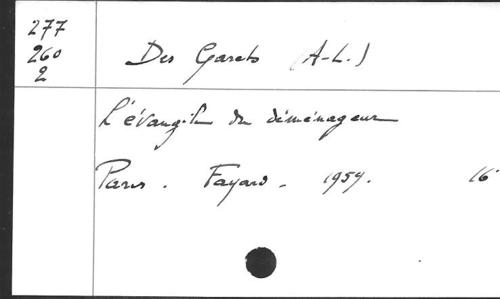 277
260
2
Des Garets (A-L.)
L'évangile du déménageur
Paris. Fayard. 1959. 16°